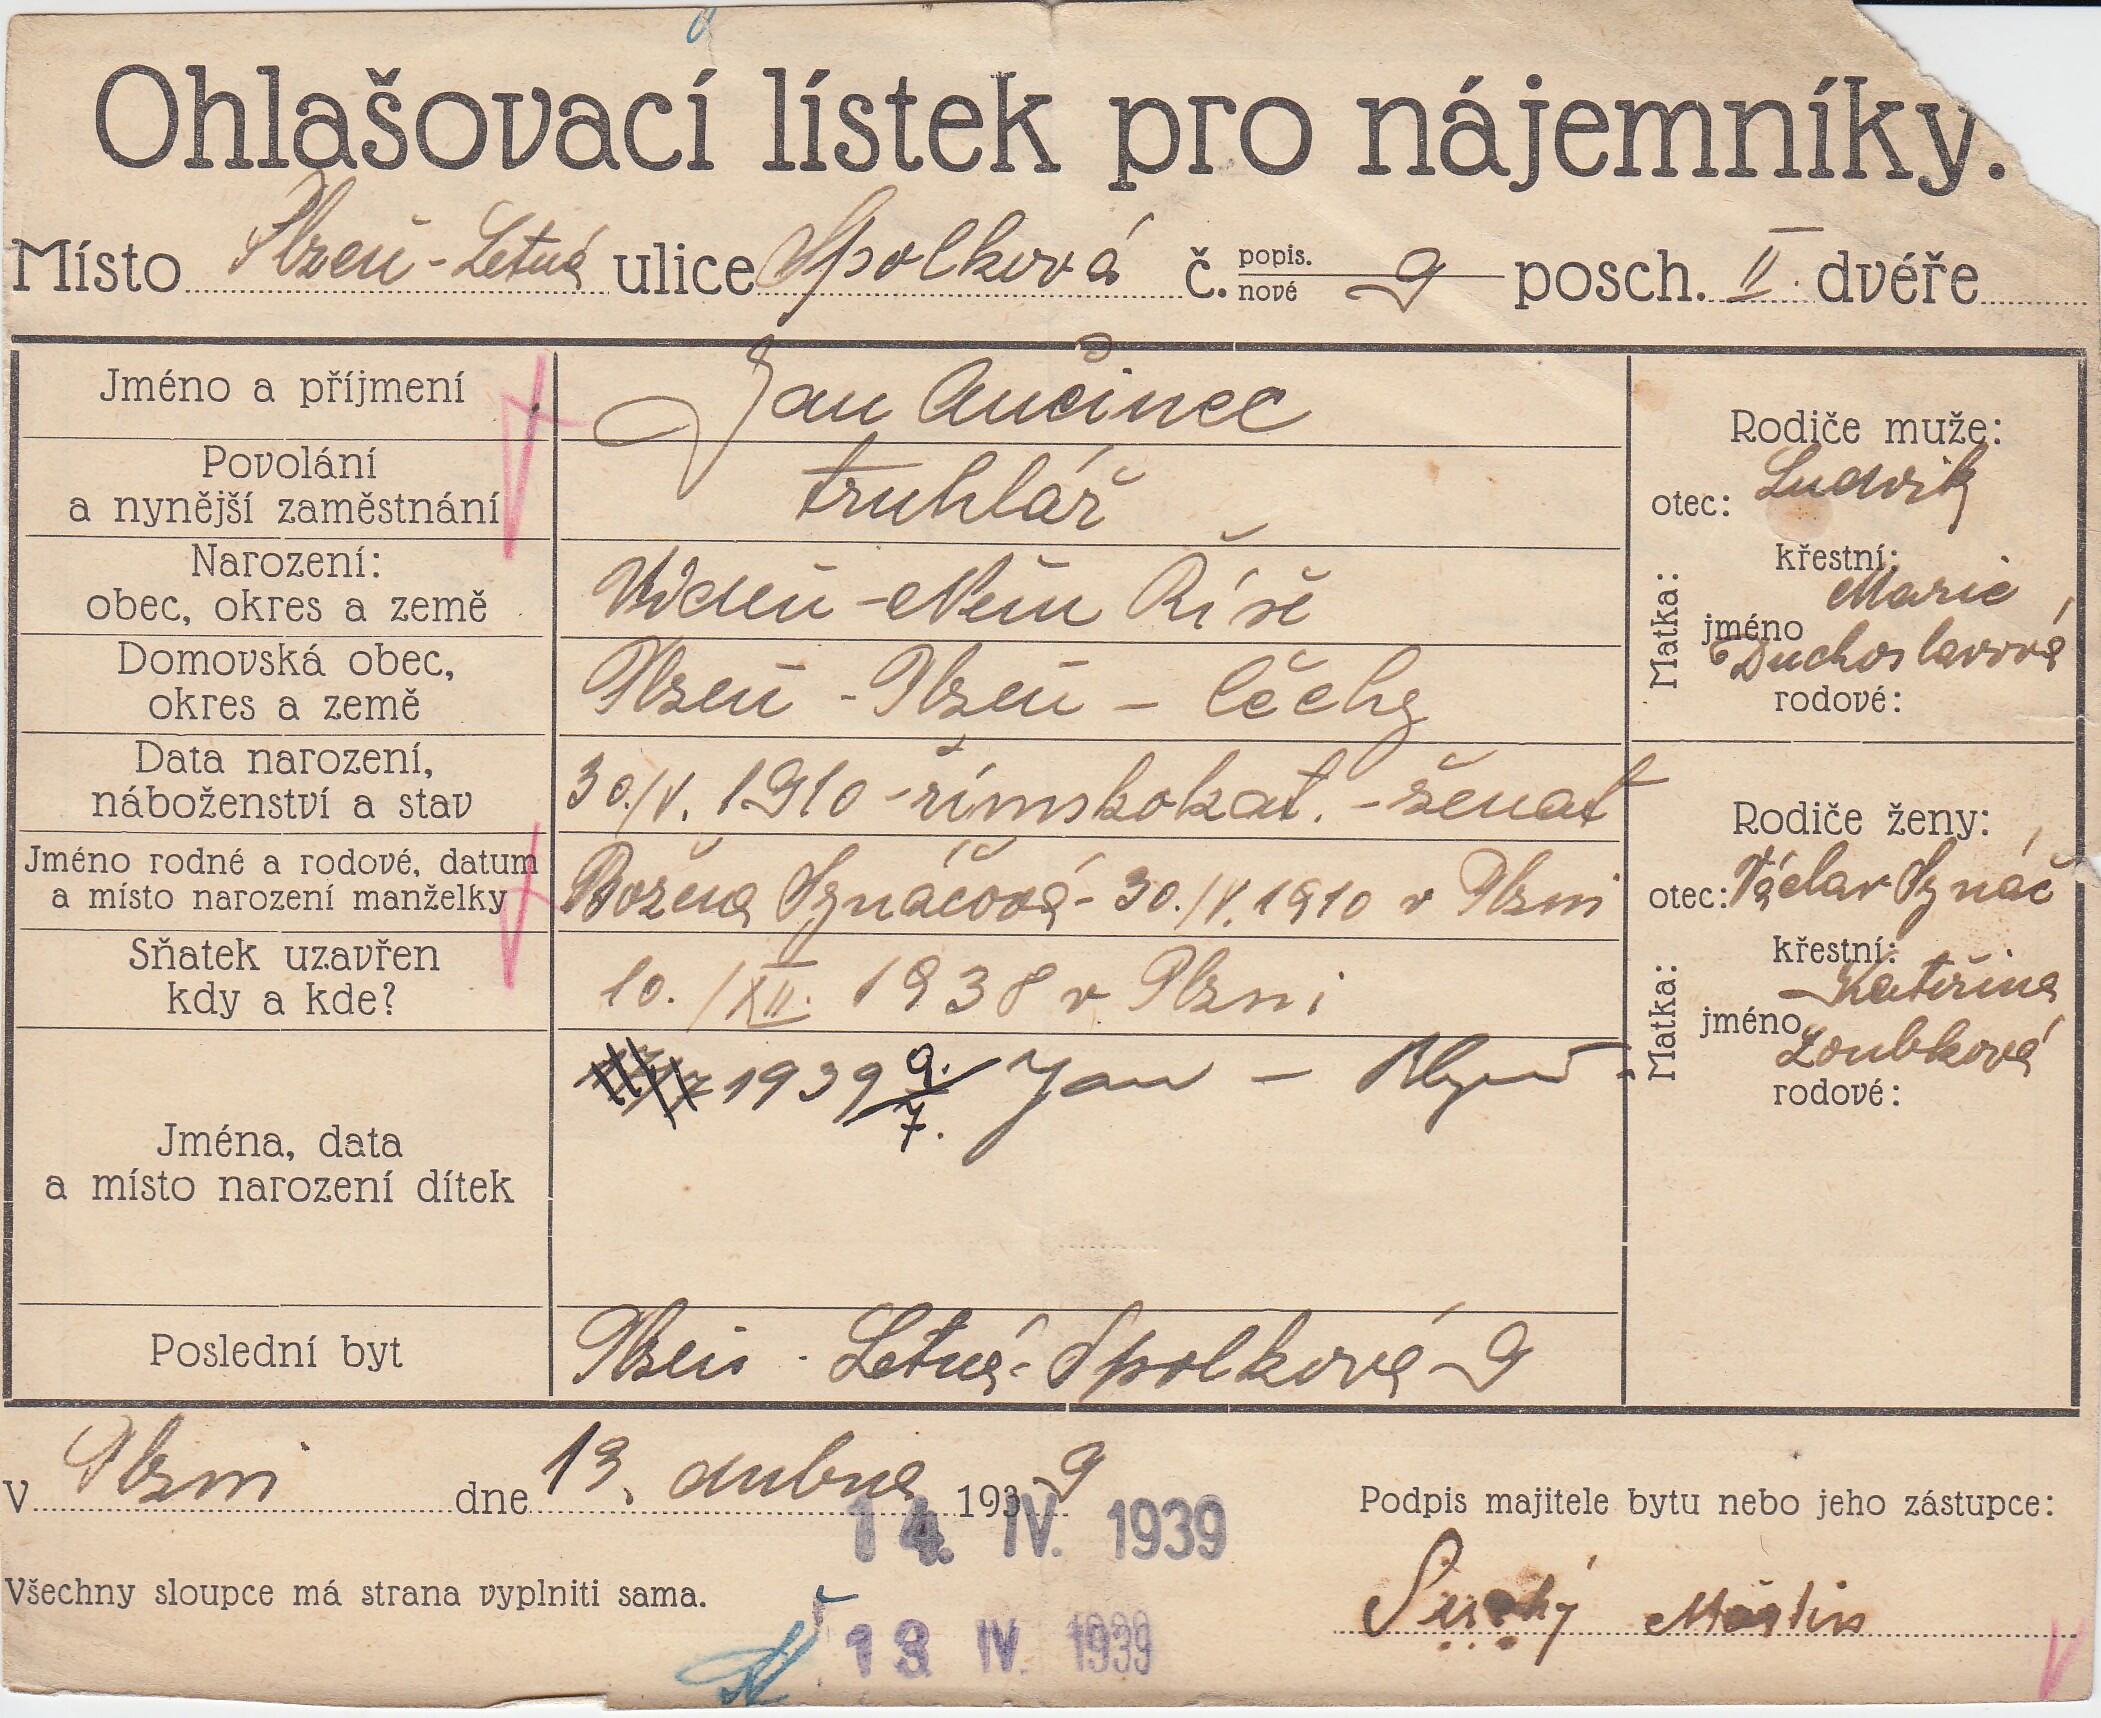 Ohlašovací lístek pro nájemníky.
Místo Plzeň-Letná ulice Spolková č. popis. nové 9 posch. II. dvéře
Jméno a příjmení Jan Aučinec
Povolání
a nynější zaměstnání truhlář
Narození:
obec, okres a země Vídeň - Něm Říše
Domovská obec,
okres a země Plzeň - Plzeň - Čechy
Data narození,
náboženství a stav 30./V. 1910 - římskokat. - ženat
Jméno rodné a rodové, datum
a místo narození manželky Božena Sgnáčová - 30./V. 1910 v Plzni
Sňatek uzavřen
kdy a kde? 10./XII. 1938 v Plzni
Jména, data
a místo narození dítek 1939 9./7. Jan - Plzeň
Poslední byt Plzeň - Letná - Spolková 9
Rodiče muže:
otec: Ludvík
Matka: křestní: Marie
jméno Duchoslavová
rodové:
Rodiče ženy:
otec: Václav Sgnáč
Matka: křestní: Kateřina
jméno Zoubková
rodové:
V Plzni dne 13. dubna 1939
14. IV. 1939
Podpis majitele bytu nebo jeho zástupce:
Všechny sloupce má strana vyplniti sama.
Suchý Martin
13 IV. 1939